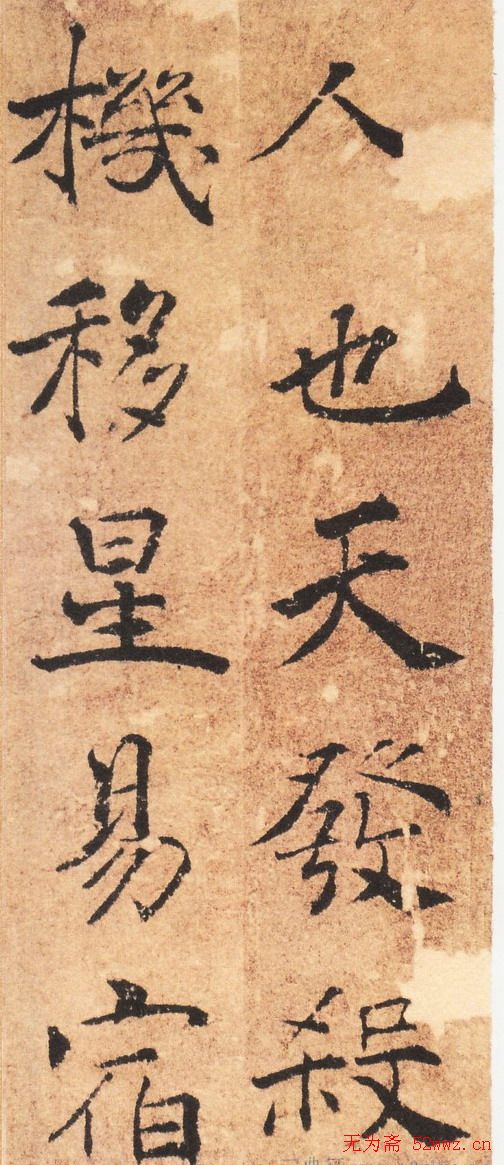 人也天發殺
機移星易宿
无为斋 52wwz.cn